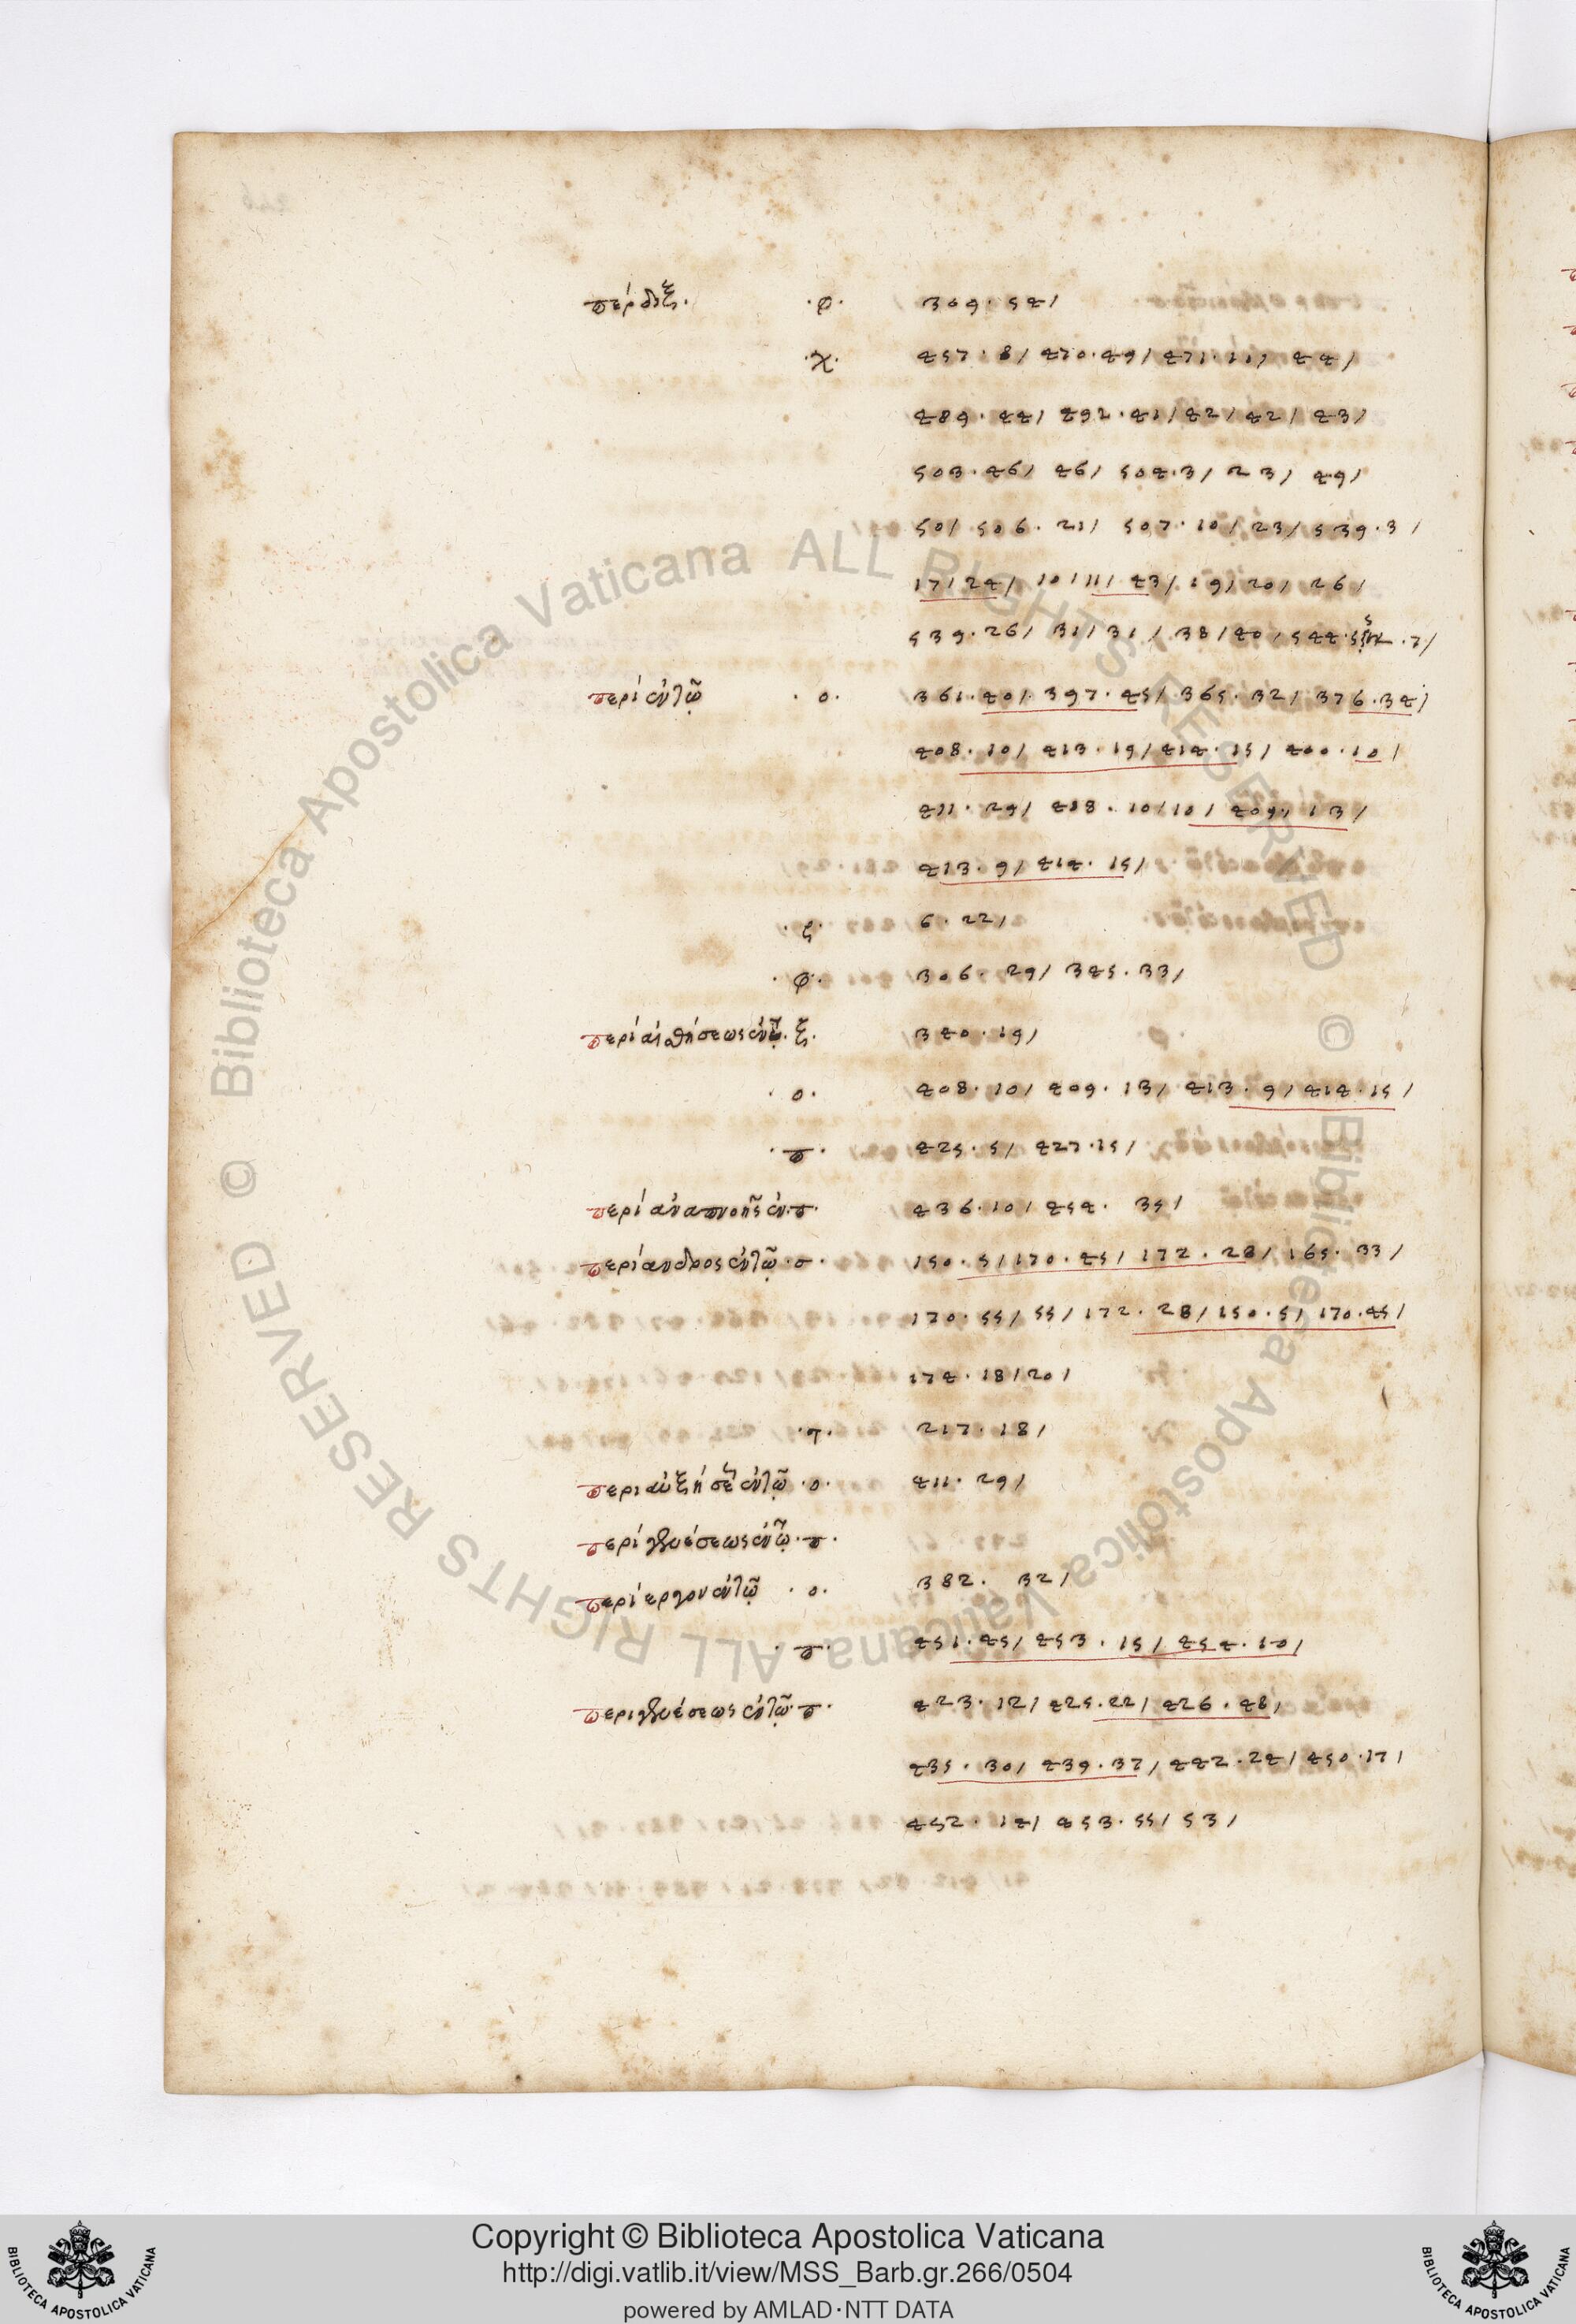 πέρδιξ. .φ. 309. 54/
.χ. 457. 8/ 470. 49/ 471. 11/ 44/
489. 44/ 492. 41/ 42/ 42/ 43/
503. 46/ 46/ 504. 3/ 23/ 49/
50/ 506. 21/ 507. 10/ 23/ 539. 3/
17/ 24/ 10/ 11/ 43/ 19/ 20/ 26/
539. 26/ 31/ 31/ 38/ 40/ 544. . 7/
περὶ αὐτῶ .ο. 361. 40/ 397. 45/ 365. 32/ 376. 34/
408. 10/ 413. 19/ 414. 15/ 400. 10/
411. 29/ 418. 10/ 10/ 409. 13/
413. 9/ 414. 15/
6. 22/
.φ. 306. 29/ 345. 33/
.ξ. 340. 19/
.ο. 408. 10/ 409. 13/ 413. 9/ 414. 15/
.π. 425. 5/ 427. 15/
περὶ ἀναπνοῆς .π. 436. 10/ 454. 35/
.σ. 150. 5/ 170. 45/ 172. 28/ 165. 33/
170. 55/ 55/ 172. 28/ 150. 5/ 170. 45/
174. 18/ 20/
.τ. 217. 18/
.ο. 411. 29/
.π.
.ο. 382. 32/
.π. 451. 45/ 453. 15/ 454. 10/
.π. 423. 12/ 425. 22/ 426. 48/
435. 30/ 439. 37/ 442. 24/ 450. 17/
452. 14/ 453. 55/ 53/
© Biblioteca Apostolica Vaticana ALL RIGHTS RESERVED © Biblioteca Apostolica Vaticana ALL RIGHTS RESERVED
Copyright © Biblioteca Apostolica Vaticana
http://digi.vatlib.it/view/MSS_Barb.gr.266/0504
powered by AMLAD·NTT DATA
BIBLIOTECA APOSTOLICA VATICANA
BIBLIOTECA APOSTOLICA VATICANA